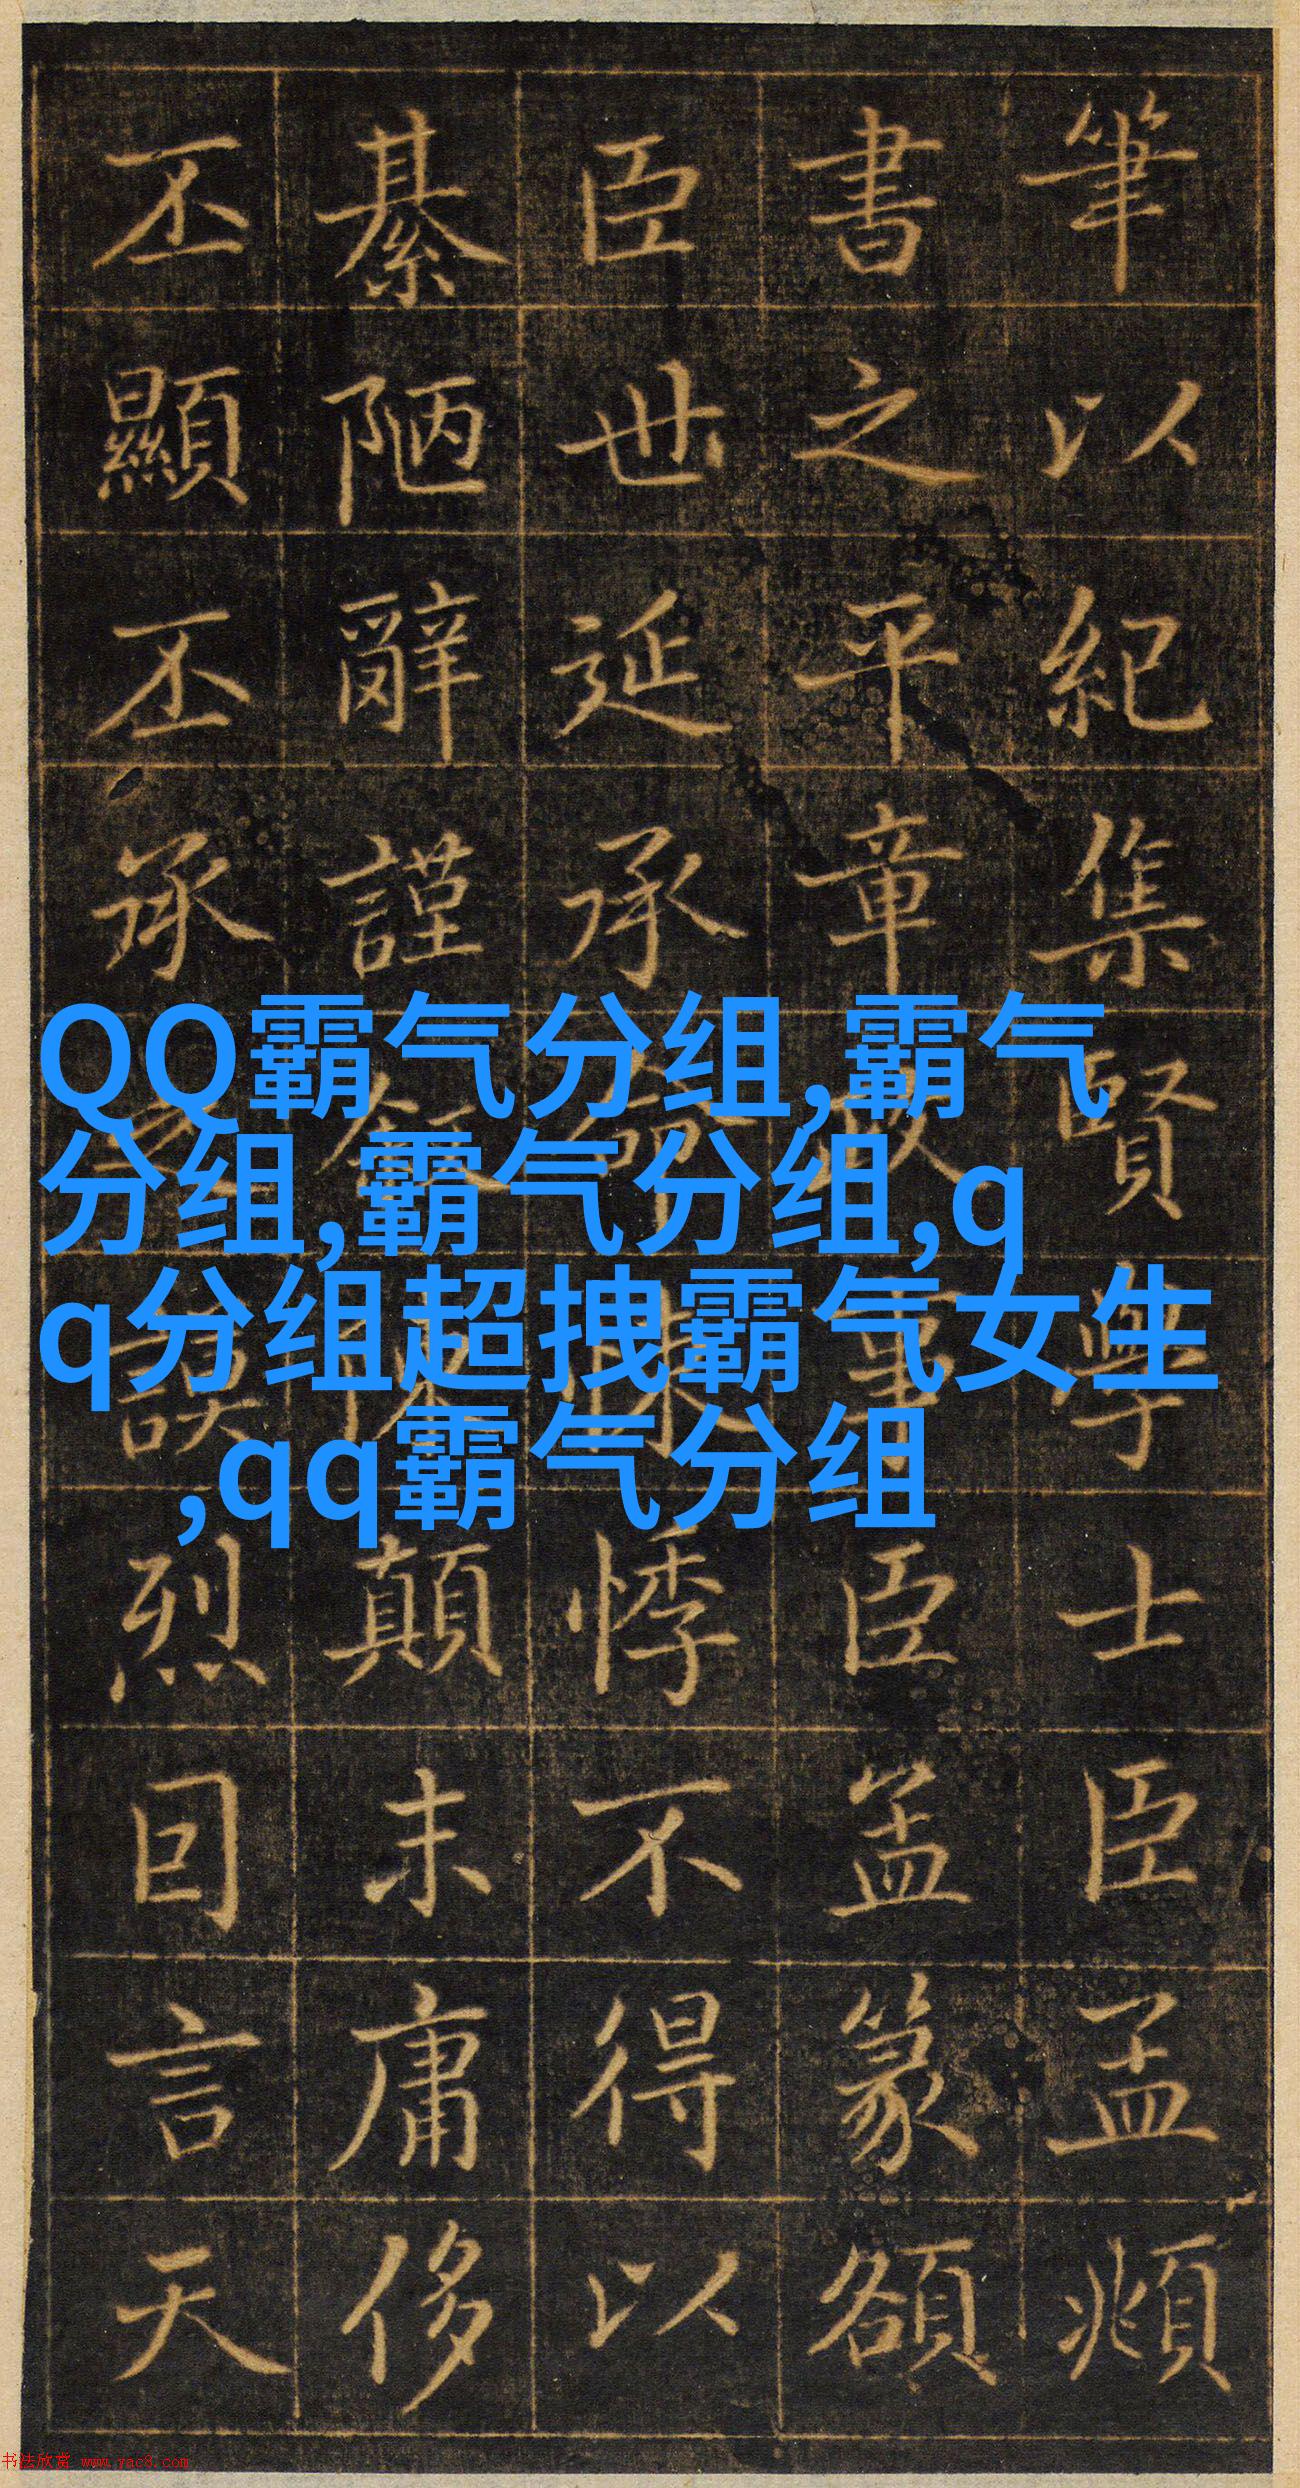 QQ霸气分组,霸气
分组,霸气分组,q
q分组超拽霸气女生
,qq霸气分组
筆以紀集賢學士臣孟頫
書之平章臣篆額
臣世延承命悸不得以
綦陋辭謹敘陳顛末庸侈
丕顯丕承謨烈言天
书法欣赏 www.yac8.com